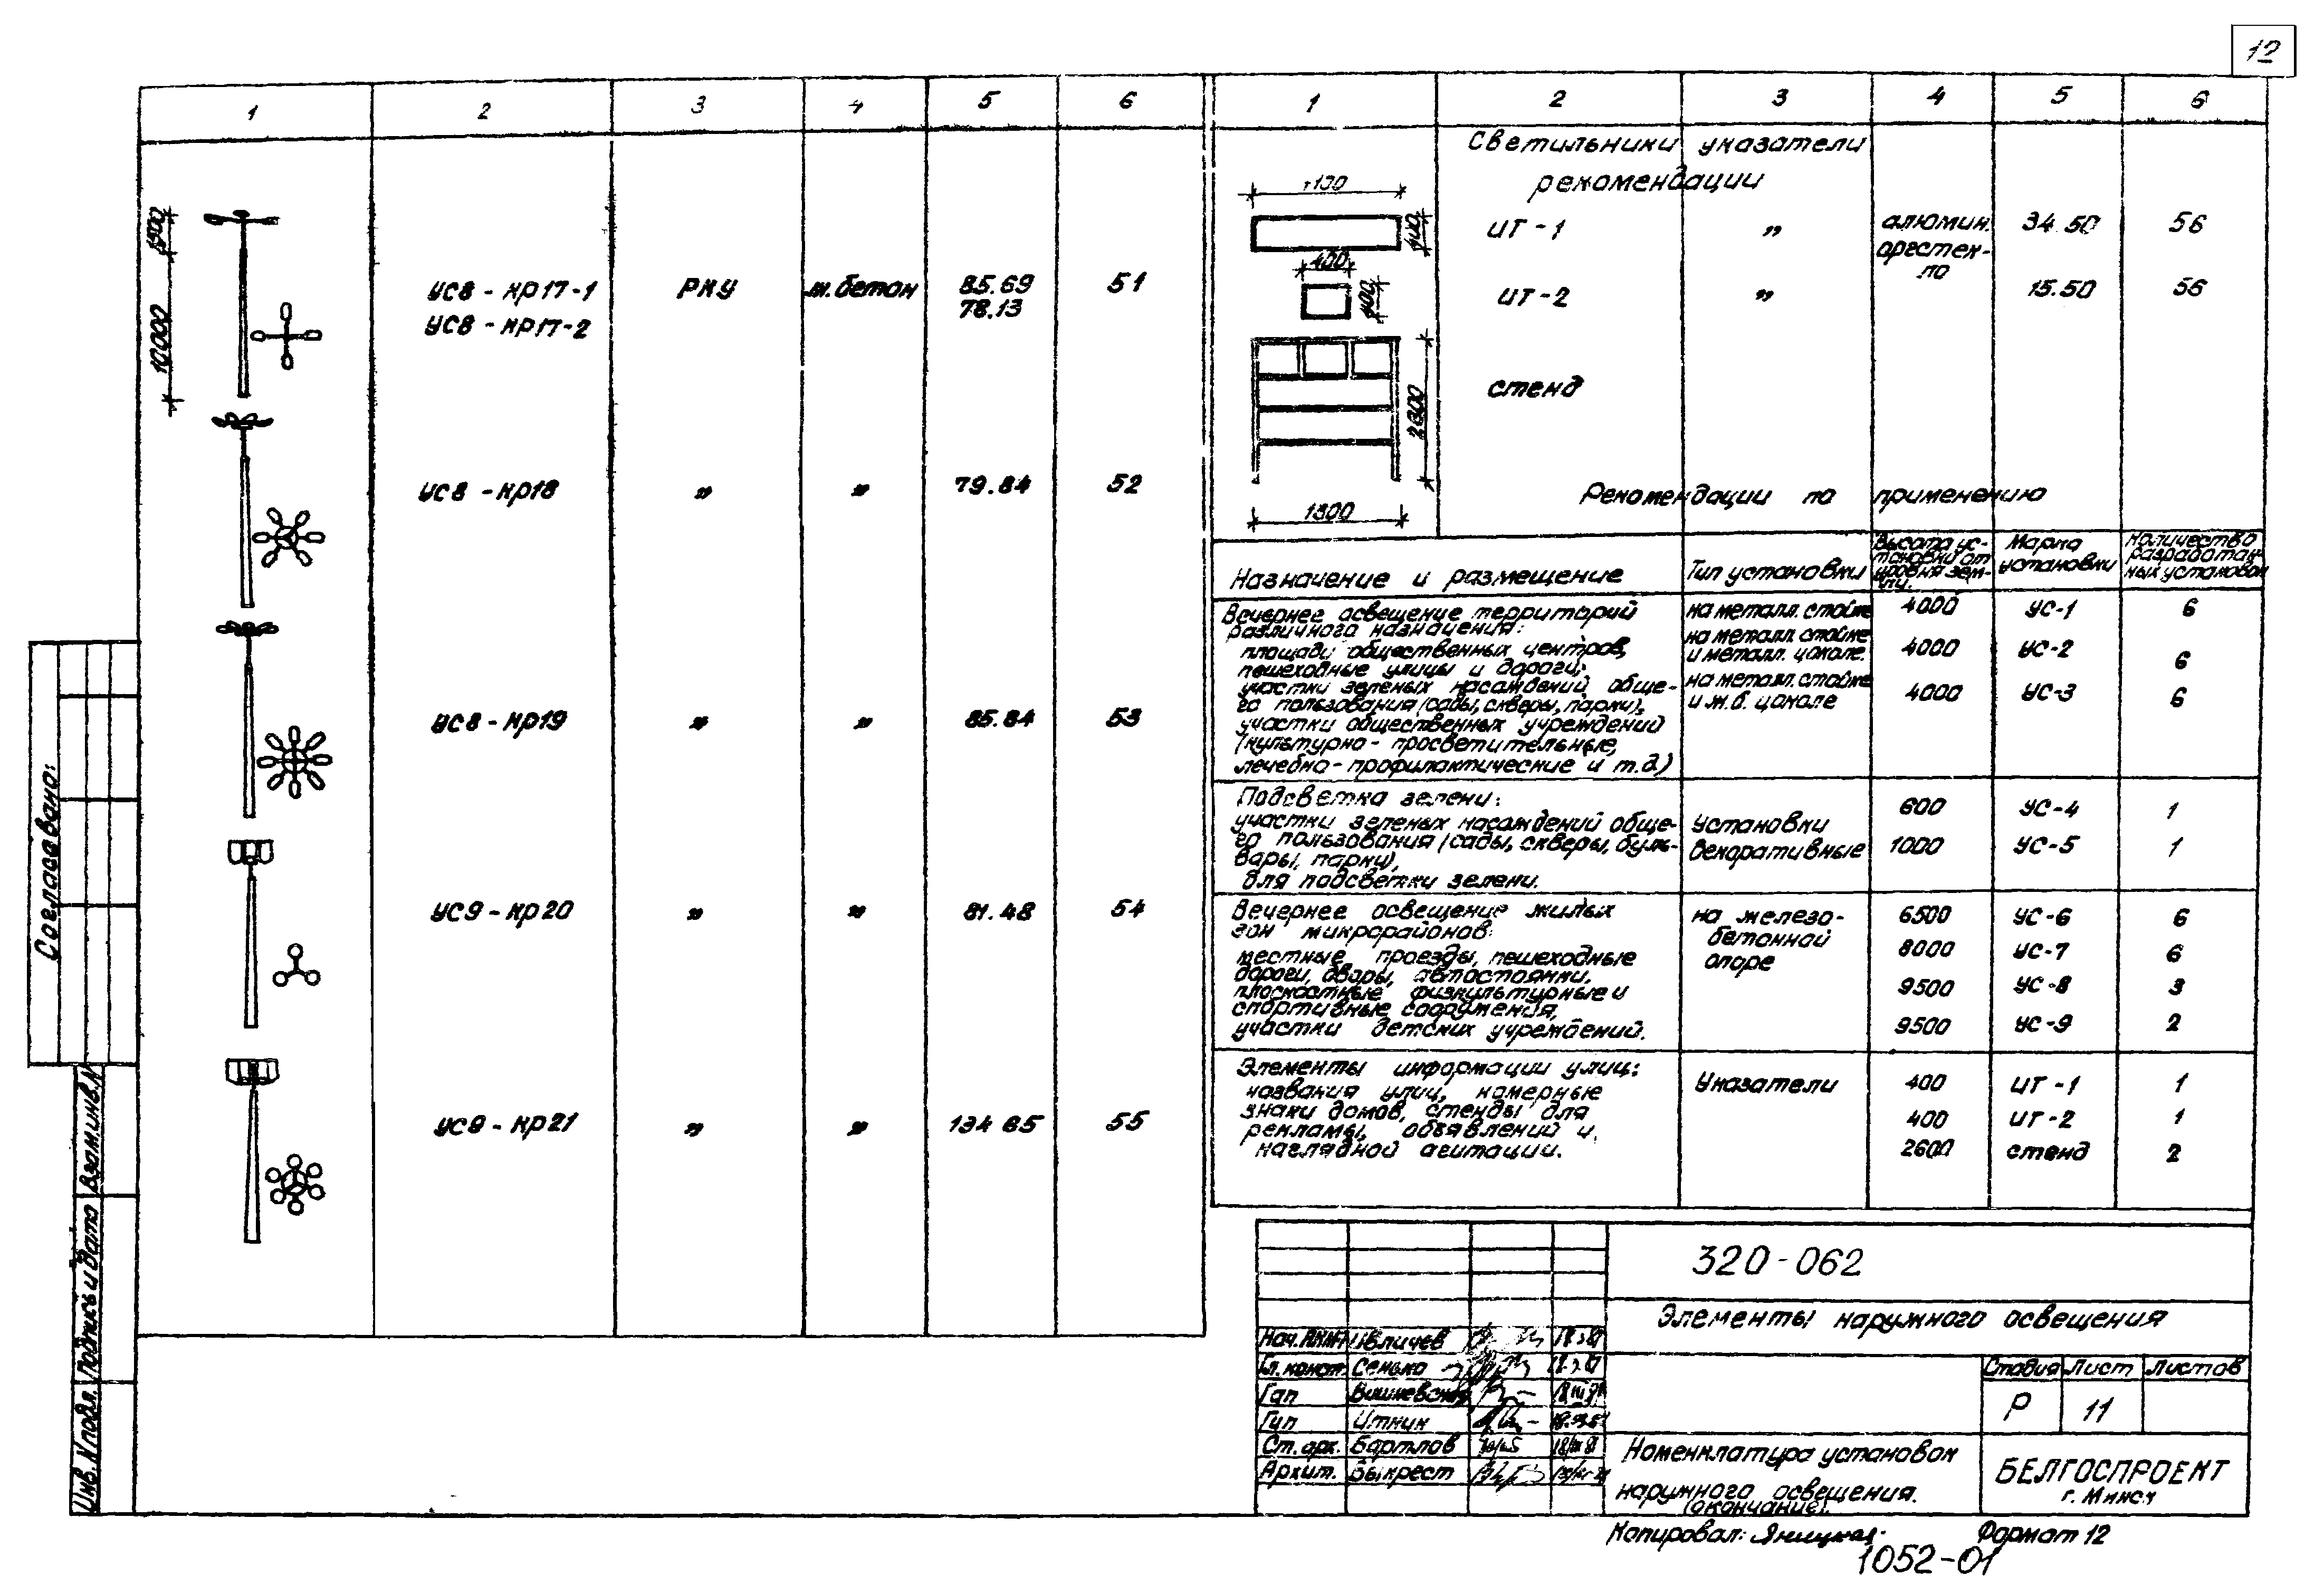 12
1 2 3 4 5 6
1900
10000
УС8 - кр17-1 РКУ ж.бетон 85.69 51
УС8 - кр17-2 78.13
УС8 - кр18 " " 79.84 52
УС8 - кр19 " " 85.84 53
УС9 - кр20 " " 81.48 54
УС9 - кр21 " " 134 65 55
1 2 3 4 5 6
Светильники указатели
рекомендации
400
ИТ - 1 " алюмин. 34.50 56
оргстек-
ло
400
400
ИТ - 2 " 15.50 56
стенд
2600
1800
Рекомендации по применению
Назначение и размещение
Тип установки
Высота ус-
тановки от
уровня зем-
ли.
Марка
установки
Количество
разработан-
ных установок
Вечернее освещение территорий
различного назначения:
площади общественных центров,
пешеходные улицы и дороги;
участки зеленых насаждений обще-
го пользования (сады, скверы, парки),
участки общественных учреждений
(культурно - просветительные,
лечебно - профилактические и т.д.)
на металл. стойке 4000 УС-1 6
на металл. стойке
и металл. цоколе. 4000 УС-2 6
на металл. стойке
и ж.б. цоколе 4000 УС-3 6
Подсветка зелени:
участки зеленых насаждений обще-
го пользования (сады, скверы, буль-
вары, парки),
для подсветки зелени.
Установки 600 УС-4 1
декоративные 1000 УС-5 1
Вечернее освещение жилых
зон микрорайонов:
местные проезды, пешеходные
дороги, дворы, автостоянки,
плоскостные физкультурные и
спортивные сооружения,
участки детских учреждений.
на железо-
бетонной
опоре
6500 УС-6 6
8000 УС-7 6
9500 УС-8 3
9500 УС-9 2
Элементы информации улиц:
названия улиц, номерные
знаки домов, стенды для
рекламы, объявлений и
наглядной агитации.
Указатели 400 ИТ - 1 1
400 ИТ - 2 1
2600 стенд 2
320-062
Элементы наружного освещения
Стадия Лист Листов
Р 11
Номенклатура установок
наружного освещения.
(окончание).
БЕЛГОСПРОЕКТ
г. Минск
Гл. конст. Сенько
Гап Вишневская
Гип Иткин
Ст. арх. Бартлов
Архит. Быкрест
Копировал: Яницкая Формат 12
1052-01
Согласовано:
Взам.инв.N
Подпись и дата
Инв. N подл.